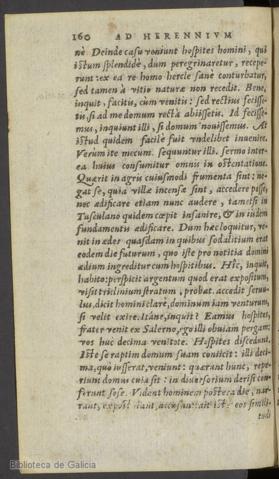 160 AD HERENNIVM
nè Deinde casu veniunt hospites homini, qui
istum splendidè, dum peregrinaretur, recepe-
runt: ex ea re homo hercle sanè conturbatur,
sed tamen à vitio naturæ non recedit. Benè,
inquit, facitis, cùm venitis: sed rectius fecisse-
tis, si ad me domum rectà abiissetis. Id fecisse-
mus, inquiunt illi, si domum nouissemus. At
istud quidem facilè fuit vndelibet inuenire.
Verùm ite mecum. sequuntur illi. sermo inter-
ea huius consumitur omnis in ostentatione.
Quærit in agris cuiusmodi frumenta sint: ne-
gat se, quia villæ incensæ sint, accedere posse,
nec ædificare etiam nunc audere, tametsi in
Tusculano quidem cœpit insanire, & in iisdem
fundamentis ædificare. Dum hæc loquitur, ve-
nit in ædes quasdam in quibus sodalitium erat
eodem die futurum, quo iste pro notitia domini
ædium ingreditur cum hospitibus. Hîc, inquit,
habito: perspicit argentum quod erat expositum,
visit triclinium stratum, probat. accedit seruu-
lus, dicit homini clarè, dominum iam venturum,
si velit exire. Itáne, inquit? Eamus hospites,
frater venit ex Salerno, ego illi obuiam pergam:
vos huc decima venitote. Hospites discedunt.
Iste se raptim domum suam coniicit: illi deci-
ma, quo iusserat, veniunt: quærunt hunc, repe-
riunt domus cuia sit: in diuersorium derisi con-
ferunt sese. Vident hominem postera die, nar-
rant, expostulant, accusant. ait iste eos simili-
tudi
Biblioteca de Galicia